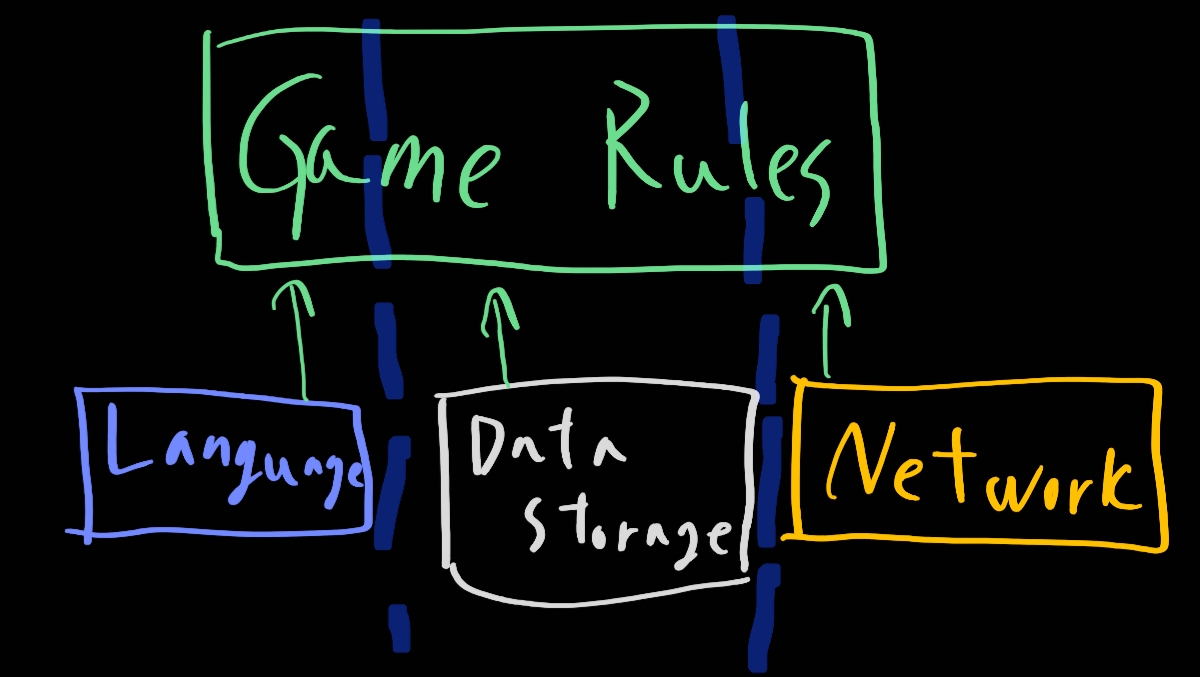 Game Rules
Language
Data
Storage
Network